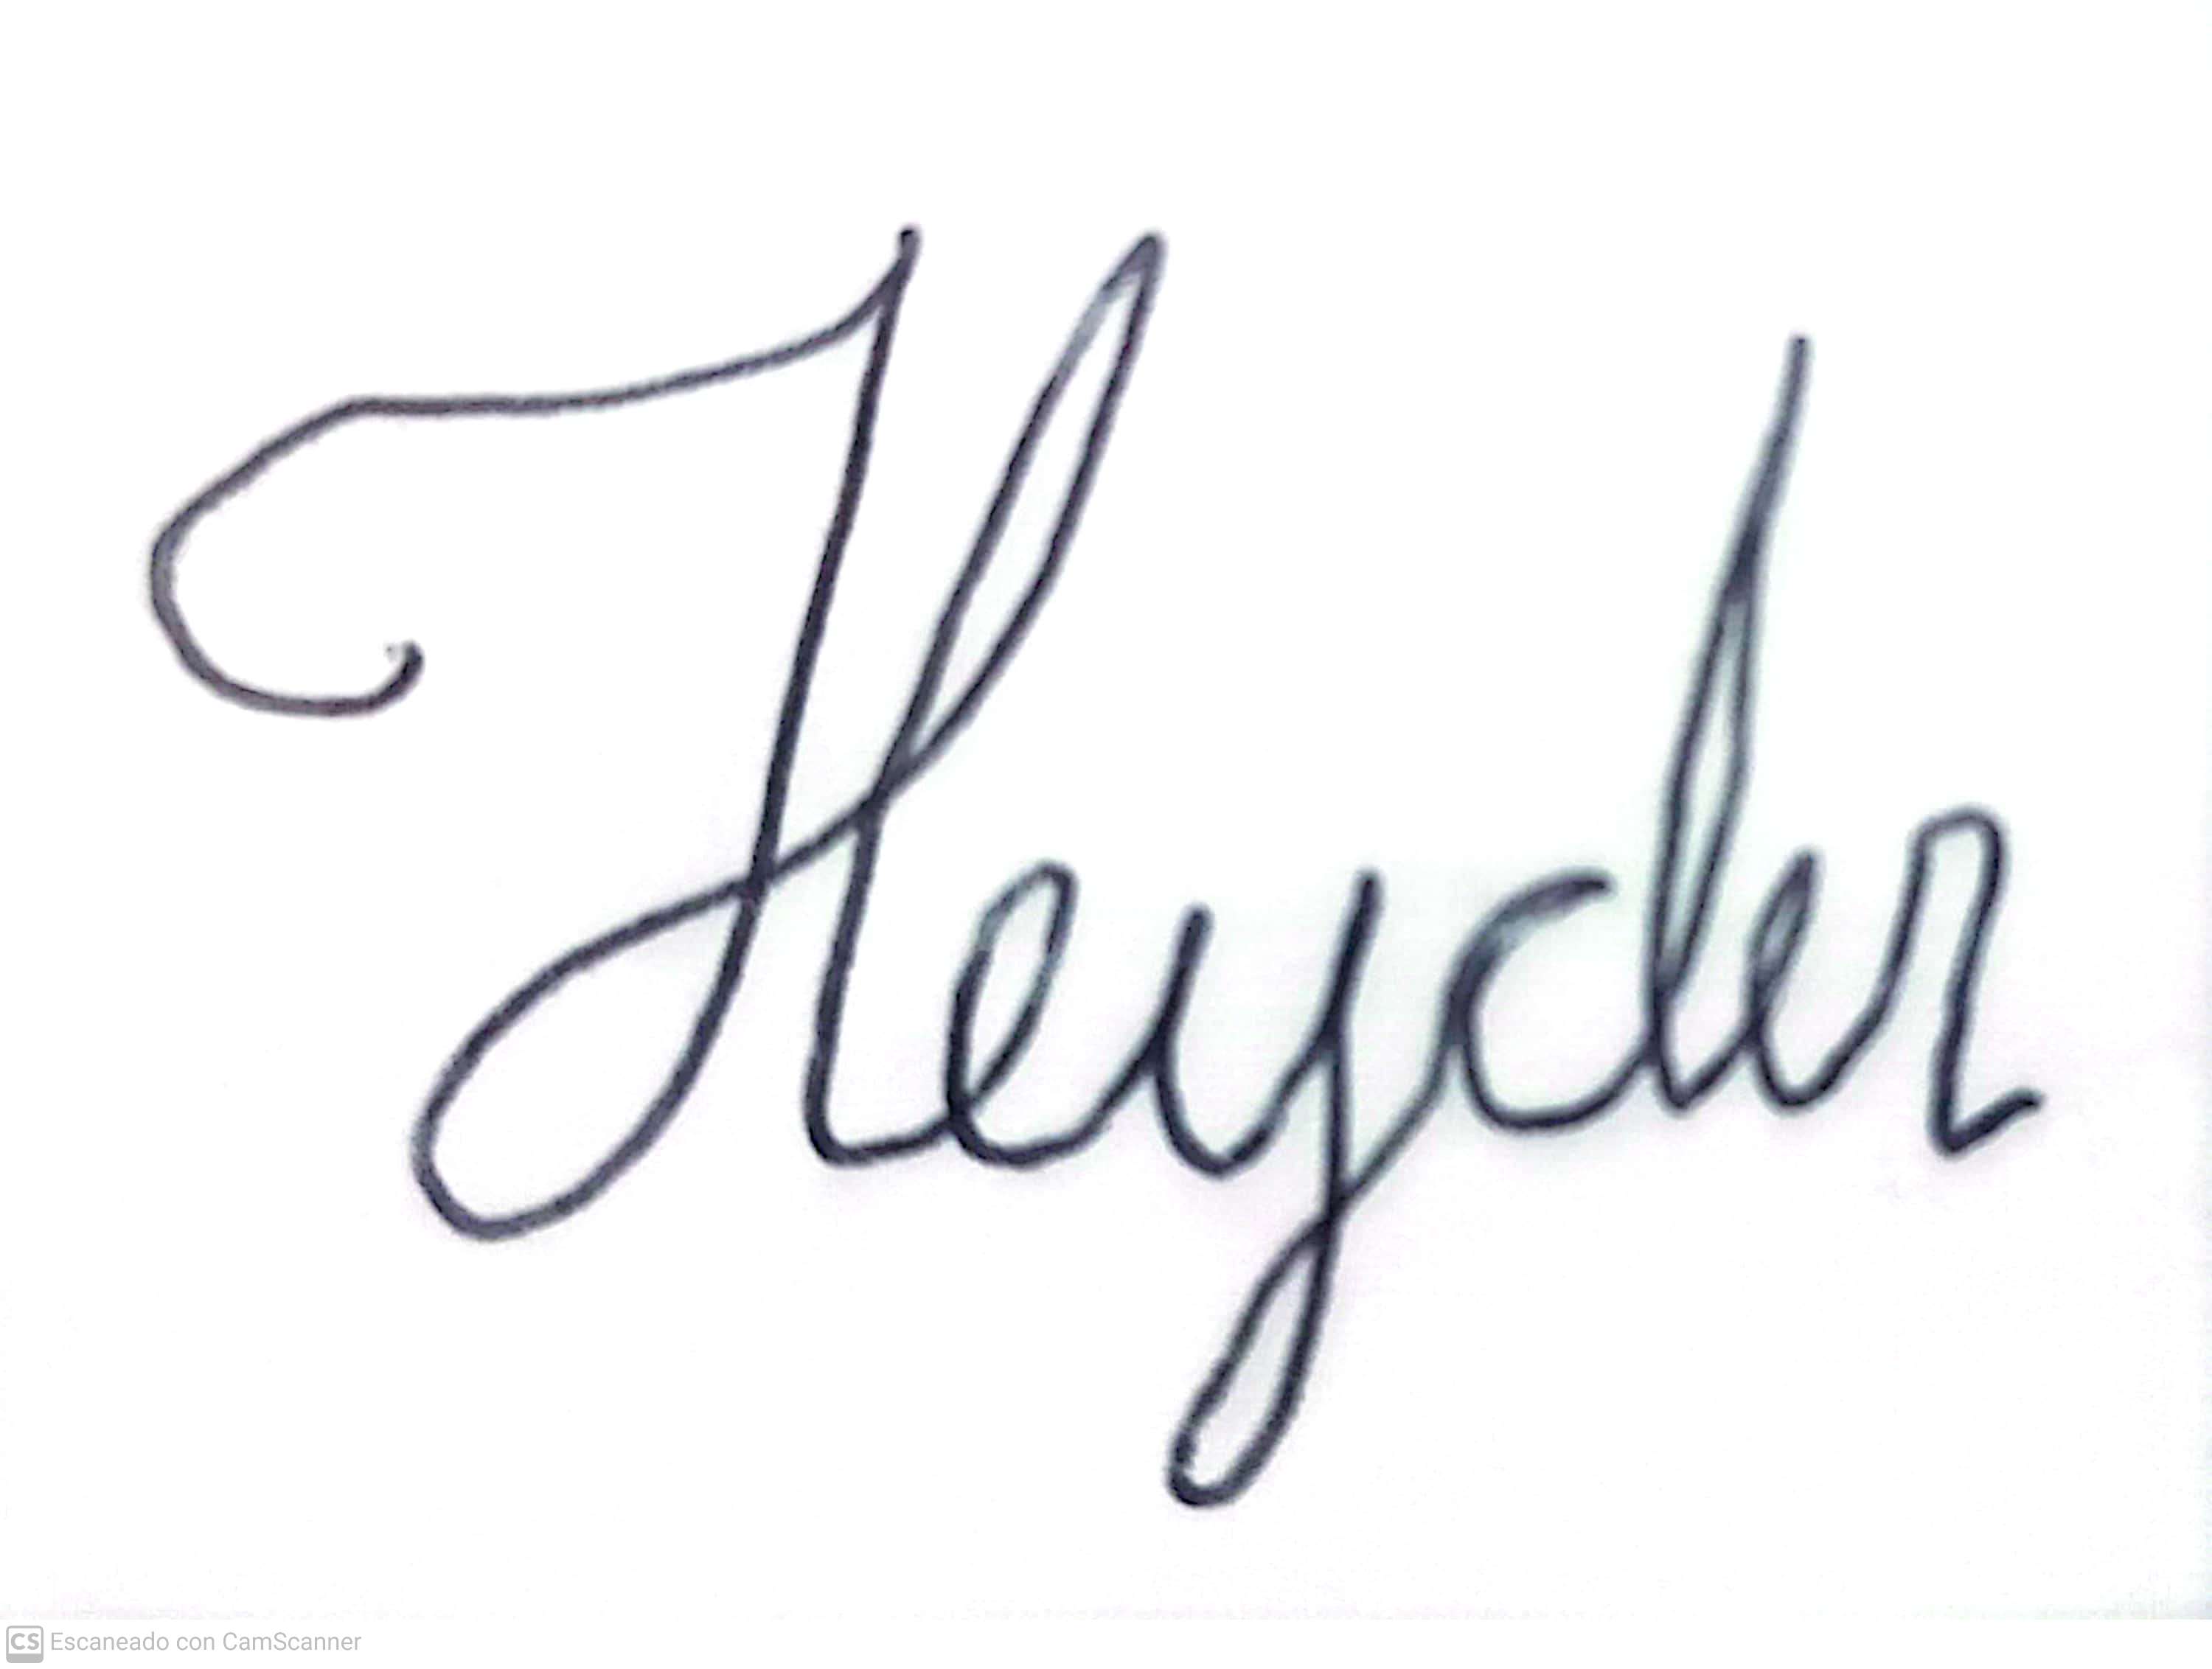 Heyder
CS Escaneado con CamScanner